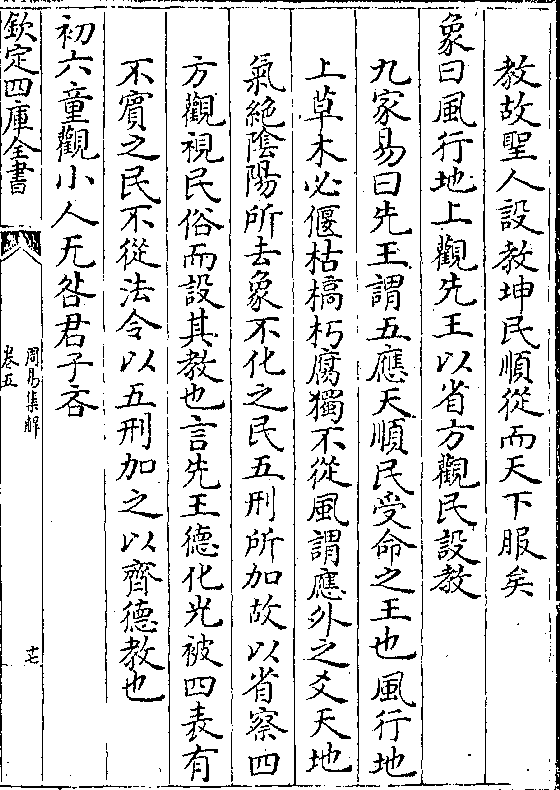 教故聖人設教坤民順從而天下服矣
象曰風行地上觀先王以省方觀民設教
九家易曰先王謂五應天順民受命之王也風行地
上草木必偃枯槁朽腐獨不從風謂應外之爻天地
氣絶陰陽所去象不化之民五刑所加故以省察四
方觀視民俗而設其教也言先王德化光被四表有
不賓之民不從法令以五刑加之以齊德教也
初六童觀小人无咎君子吝
欽定四庫全書
周易集解
卷五
十七